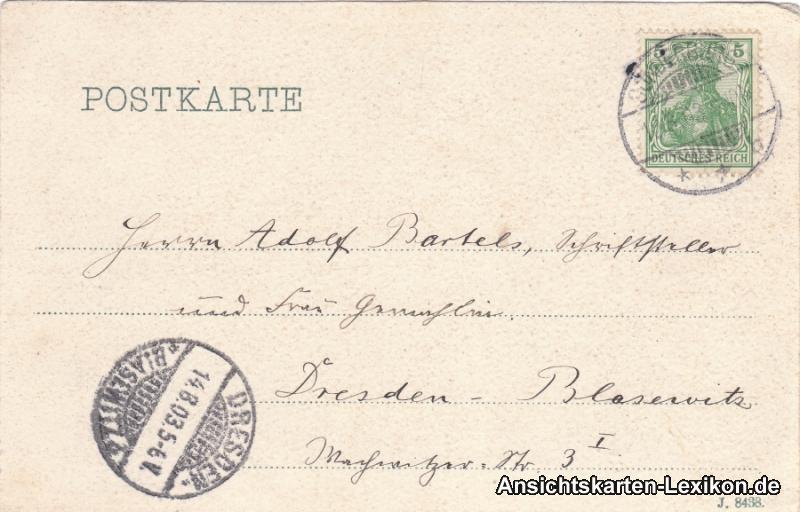 POSTKARTE
5 5
DEUTSCHES REICH
Herrn Adolf Bartels, Schriftsteller
und Frau Gemahlin.
Dresden - Blasewitz
Wachwitzer-Str. 3 I
DRESDEN-
BLASEWITZ
14.8.03.5-6V.
Ansichtskarten-Lexikon.de
J. 8438.